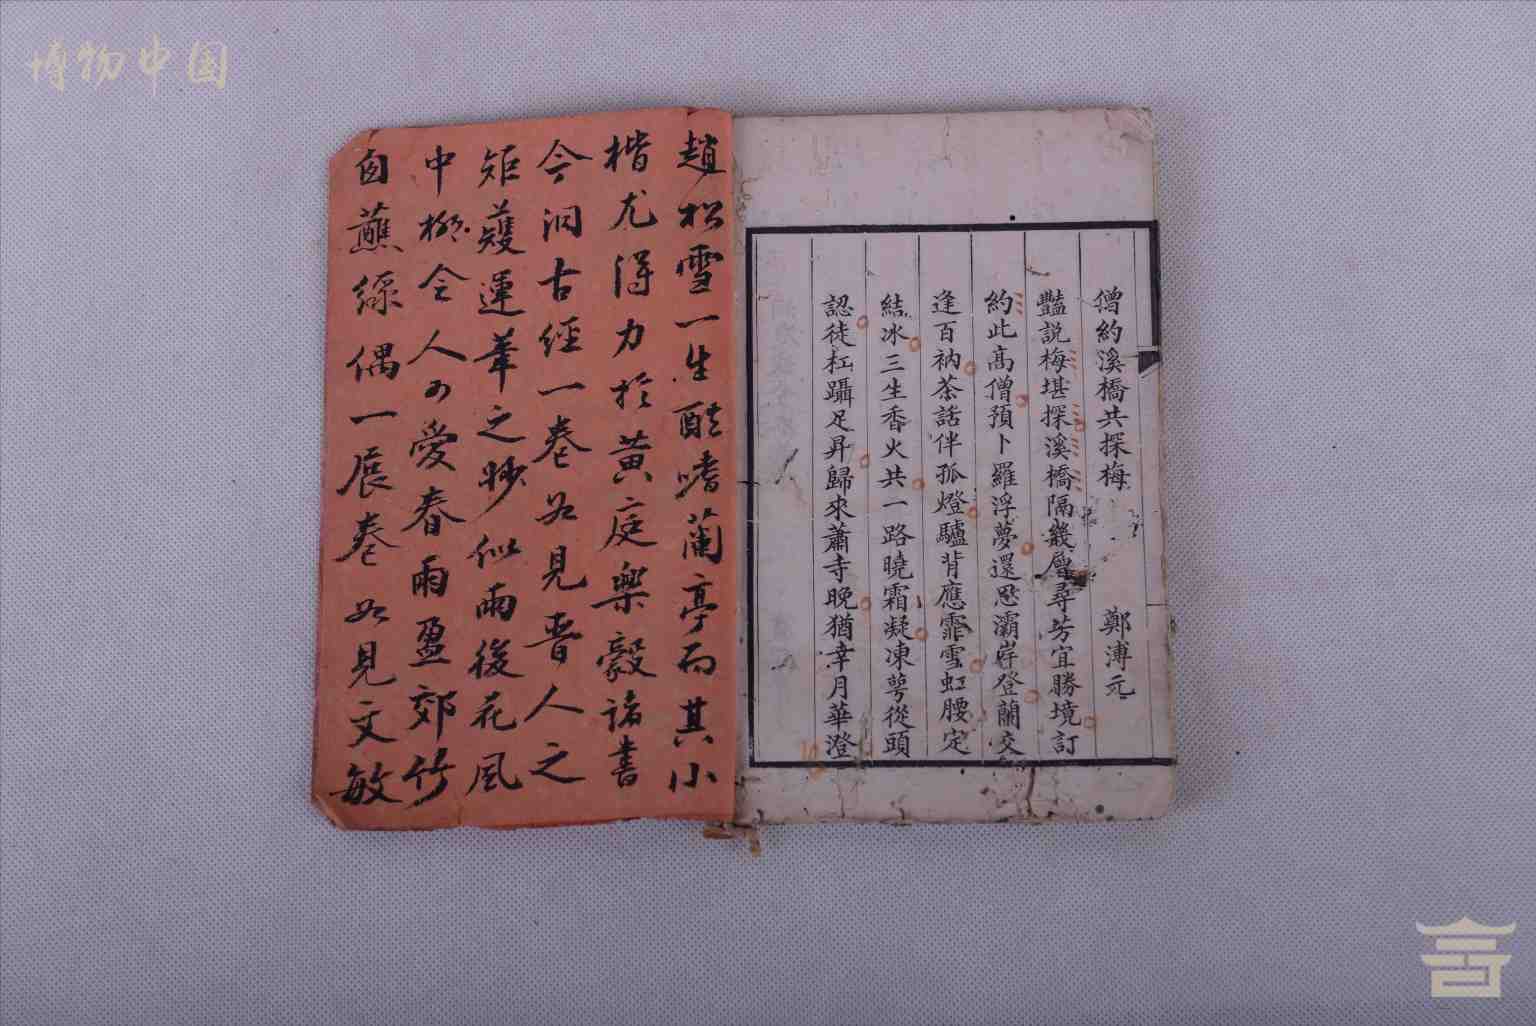 博物中国
僧約溪橋共探梅 鄭溥元
豔說梅堪探溪橋隔幾層尋芳宜勝境訂
約此高僧預卜羅浮夢還思灞岸登蘭交
逢百衲茶話伴孤燈驢背應霏雪虹腰定
結冰三生香火共一路曉霜凝凍萼從頭
認徒杠躡足昇歸來蕭寺晚猶幸月華澄
趙松雪一生酷嗜蘭亭而其小
楷尤得力於黃庭樂毅諸書
今洞古經一卷如見晉人之
矩矱運筆之妙似雨後花風
中柳令人可愛春雨盈郊竹
自蘸綠偶一展卷如見文敏